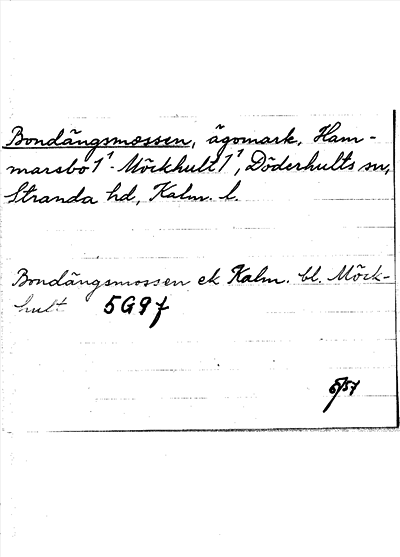 Bondängsmossen, ägomark, Ham-
marsbo 1¹ - Möckhult 1¹, Döderhults sn,
Stranda hd, Kalm. l.
Bondängsmossen ek Kalm. bl. Möck-
hult 5G9f
5/57